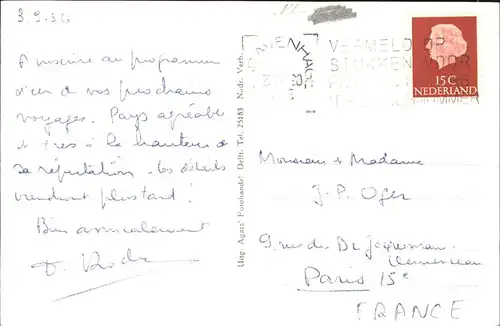 3.9.56
A inscrire au programme
d'un de vos prochains
voyages. Pays agréable
et très à la hauteur de
sa réputation. Les détails
viendront plus tard !
Bien amicalement
Uitg. Agatz' Fotohandel Delft. Tel. 25183 Nadr. Verb.
VERMELD OP
STUKKEN VOOR
15 C
NEDERLAND
Monsieur et Madame
J-P. Oger
9 rue du Dr Jacquemaire
Clemenceau
Paris 15e
FRANCE